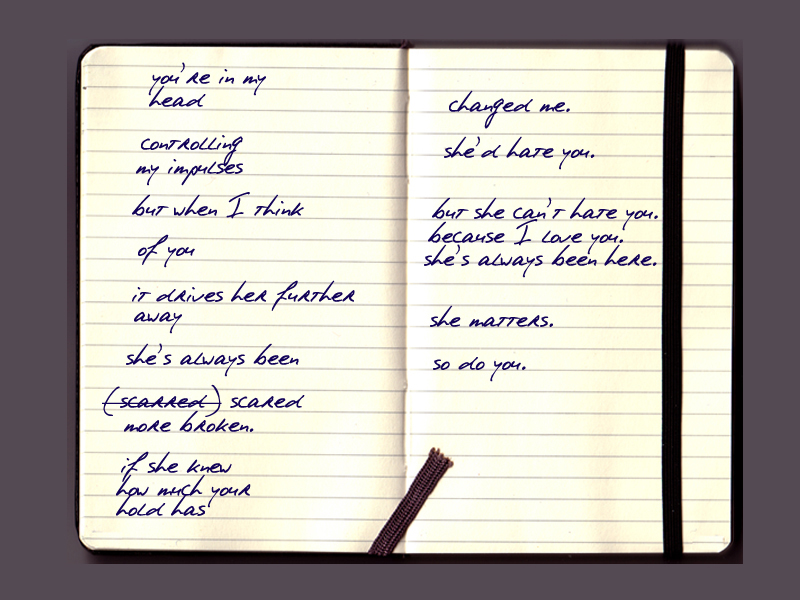 you're in my
head
controlling
my impulses
but when I think
of you
it drives her further
away
she's always been
(scarred) scared
more broken.
if she knew
how much your
hold has
changed me.
she'd hate you.
but she can't hate you.
because I love you.
she's always been here.
she matters.
so do you.